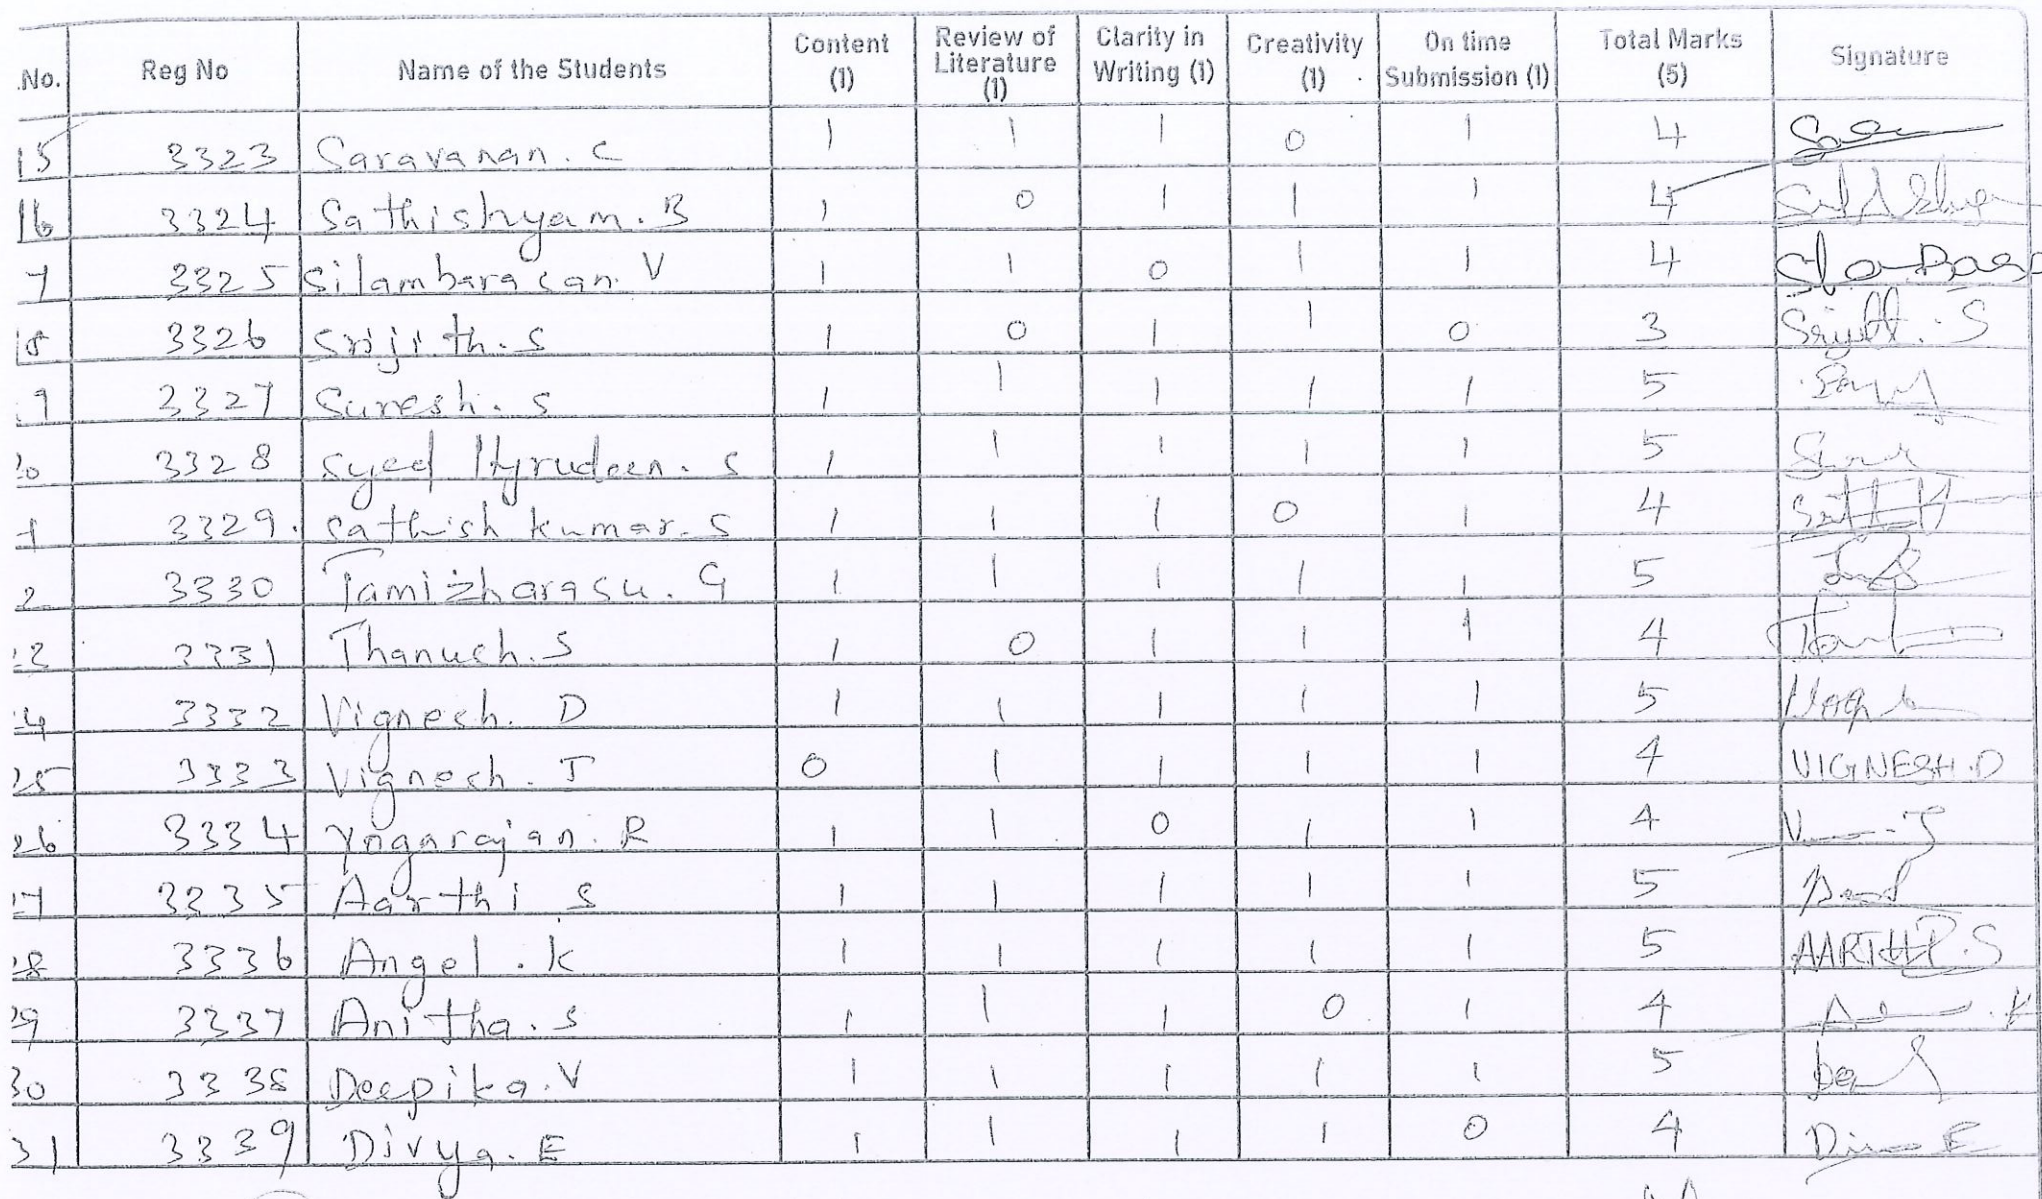 .No. Reg No Name of the Students Content (1) Review of Literature (1) Clarity in Writing (1) Creativity (1) On time Submission (1) Total Marks (5) Signature
15 3323 Saravanan. C 1 1 1 0 1 4
16 3324 Sathishyam. B 1 0 1 1 1 4
7 3325 Silambarasan. V 1 1 0 1 1 4
18 3326 Srijith. S 1 0 1 1 0 3 Srijith. S
9 3327 Suresh. S 1 1 1 1 1 5
20 3328 Syed Hyrudeen. S 1 1 1 1 1 5
1 3329. Sathish kumar. S 1 1 1 0 1 4
2 3330 Tamizharasu. G 1 1 1 1 1 5
23 3331 Thanush. S 1 0 1 1 1 4
24 3332 Vignesh. D 1 1 1 1 1 5
25 3333 Vignesh. J 0 1 1 1 1 4 VIGNESH.D
26 3334 Yogarajan. R 1 1 0 1 1 4
27 3335 Aarthi S 1 1 1 1 1 5
28 3336 Angel. K 1 1 1 1 1 5 AARTHI.S
29 3337 Anitha. S 1 1 1 0 1 4
30 3338 Deepika. V 1 1 1 1 1 5
31 3339 Divya. E 1 1 1 1 0 4